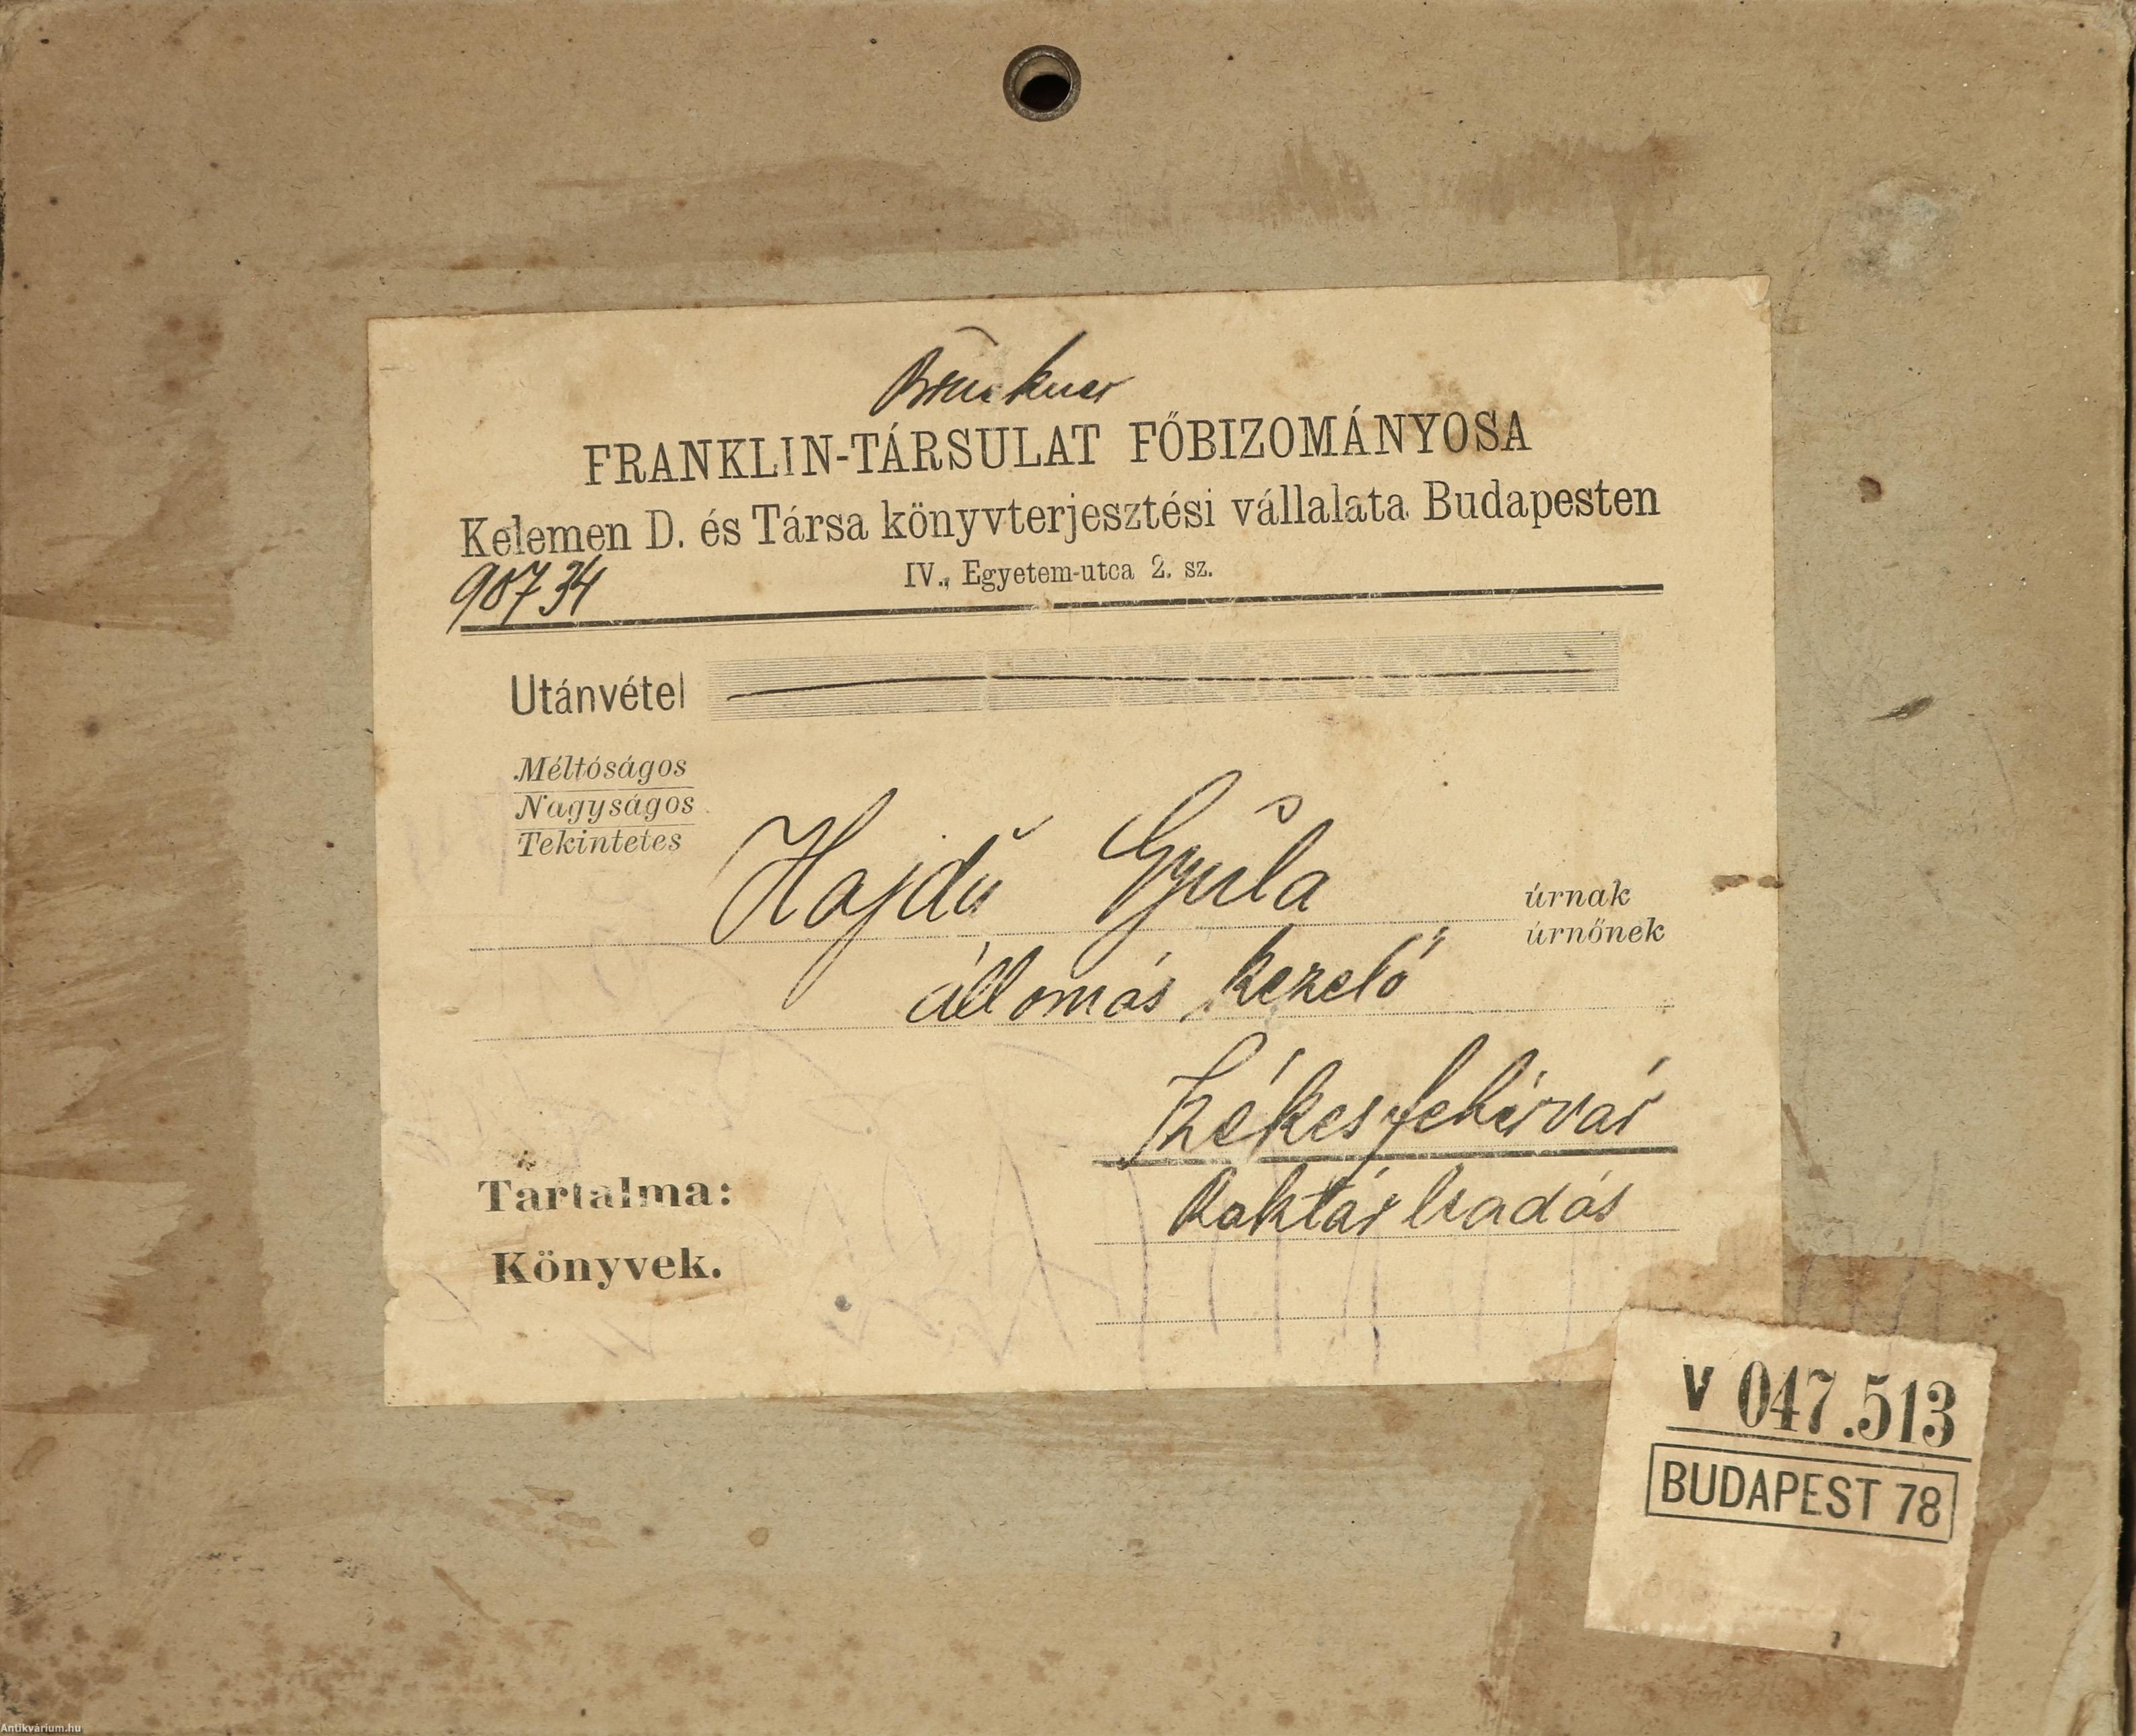 Bruckner
FRANKLIN-TÁRSULAT FŐBIZOMÁNYOSA
Kelemen D. és Társa könyvterjesztési vállalata Budapesten
IV., Egyetem-utca 2. sz.
98734
Utánvétel
Méltóságos
Nagyságos
Tekintetes
Hajdú Gyula
úrnak
úrnőnek
állomás kezelő
Székesfehérvár
Raktár
Tartalma:
Könyvek.
V 047.513
BUDAPEST 78
Antikvárium.hu